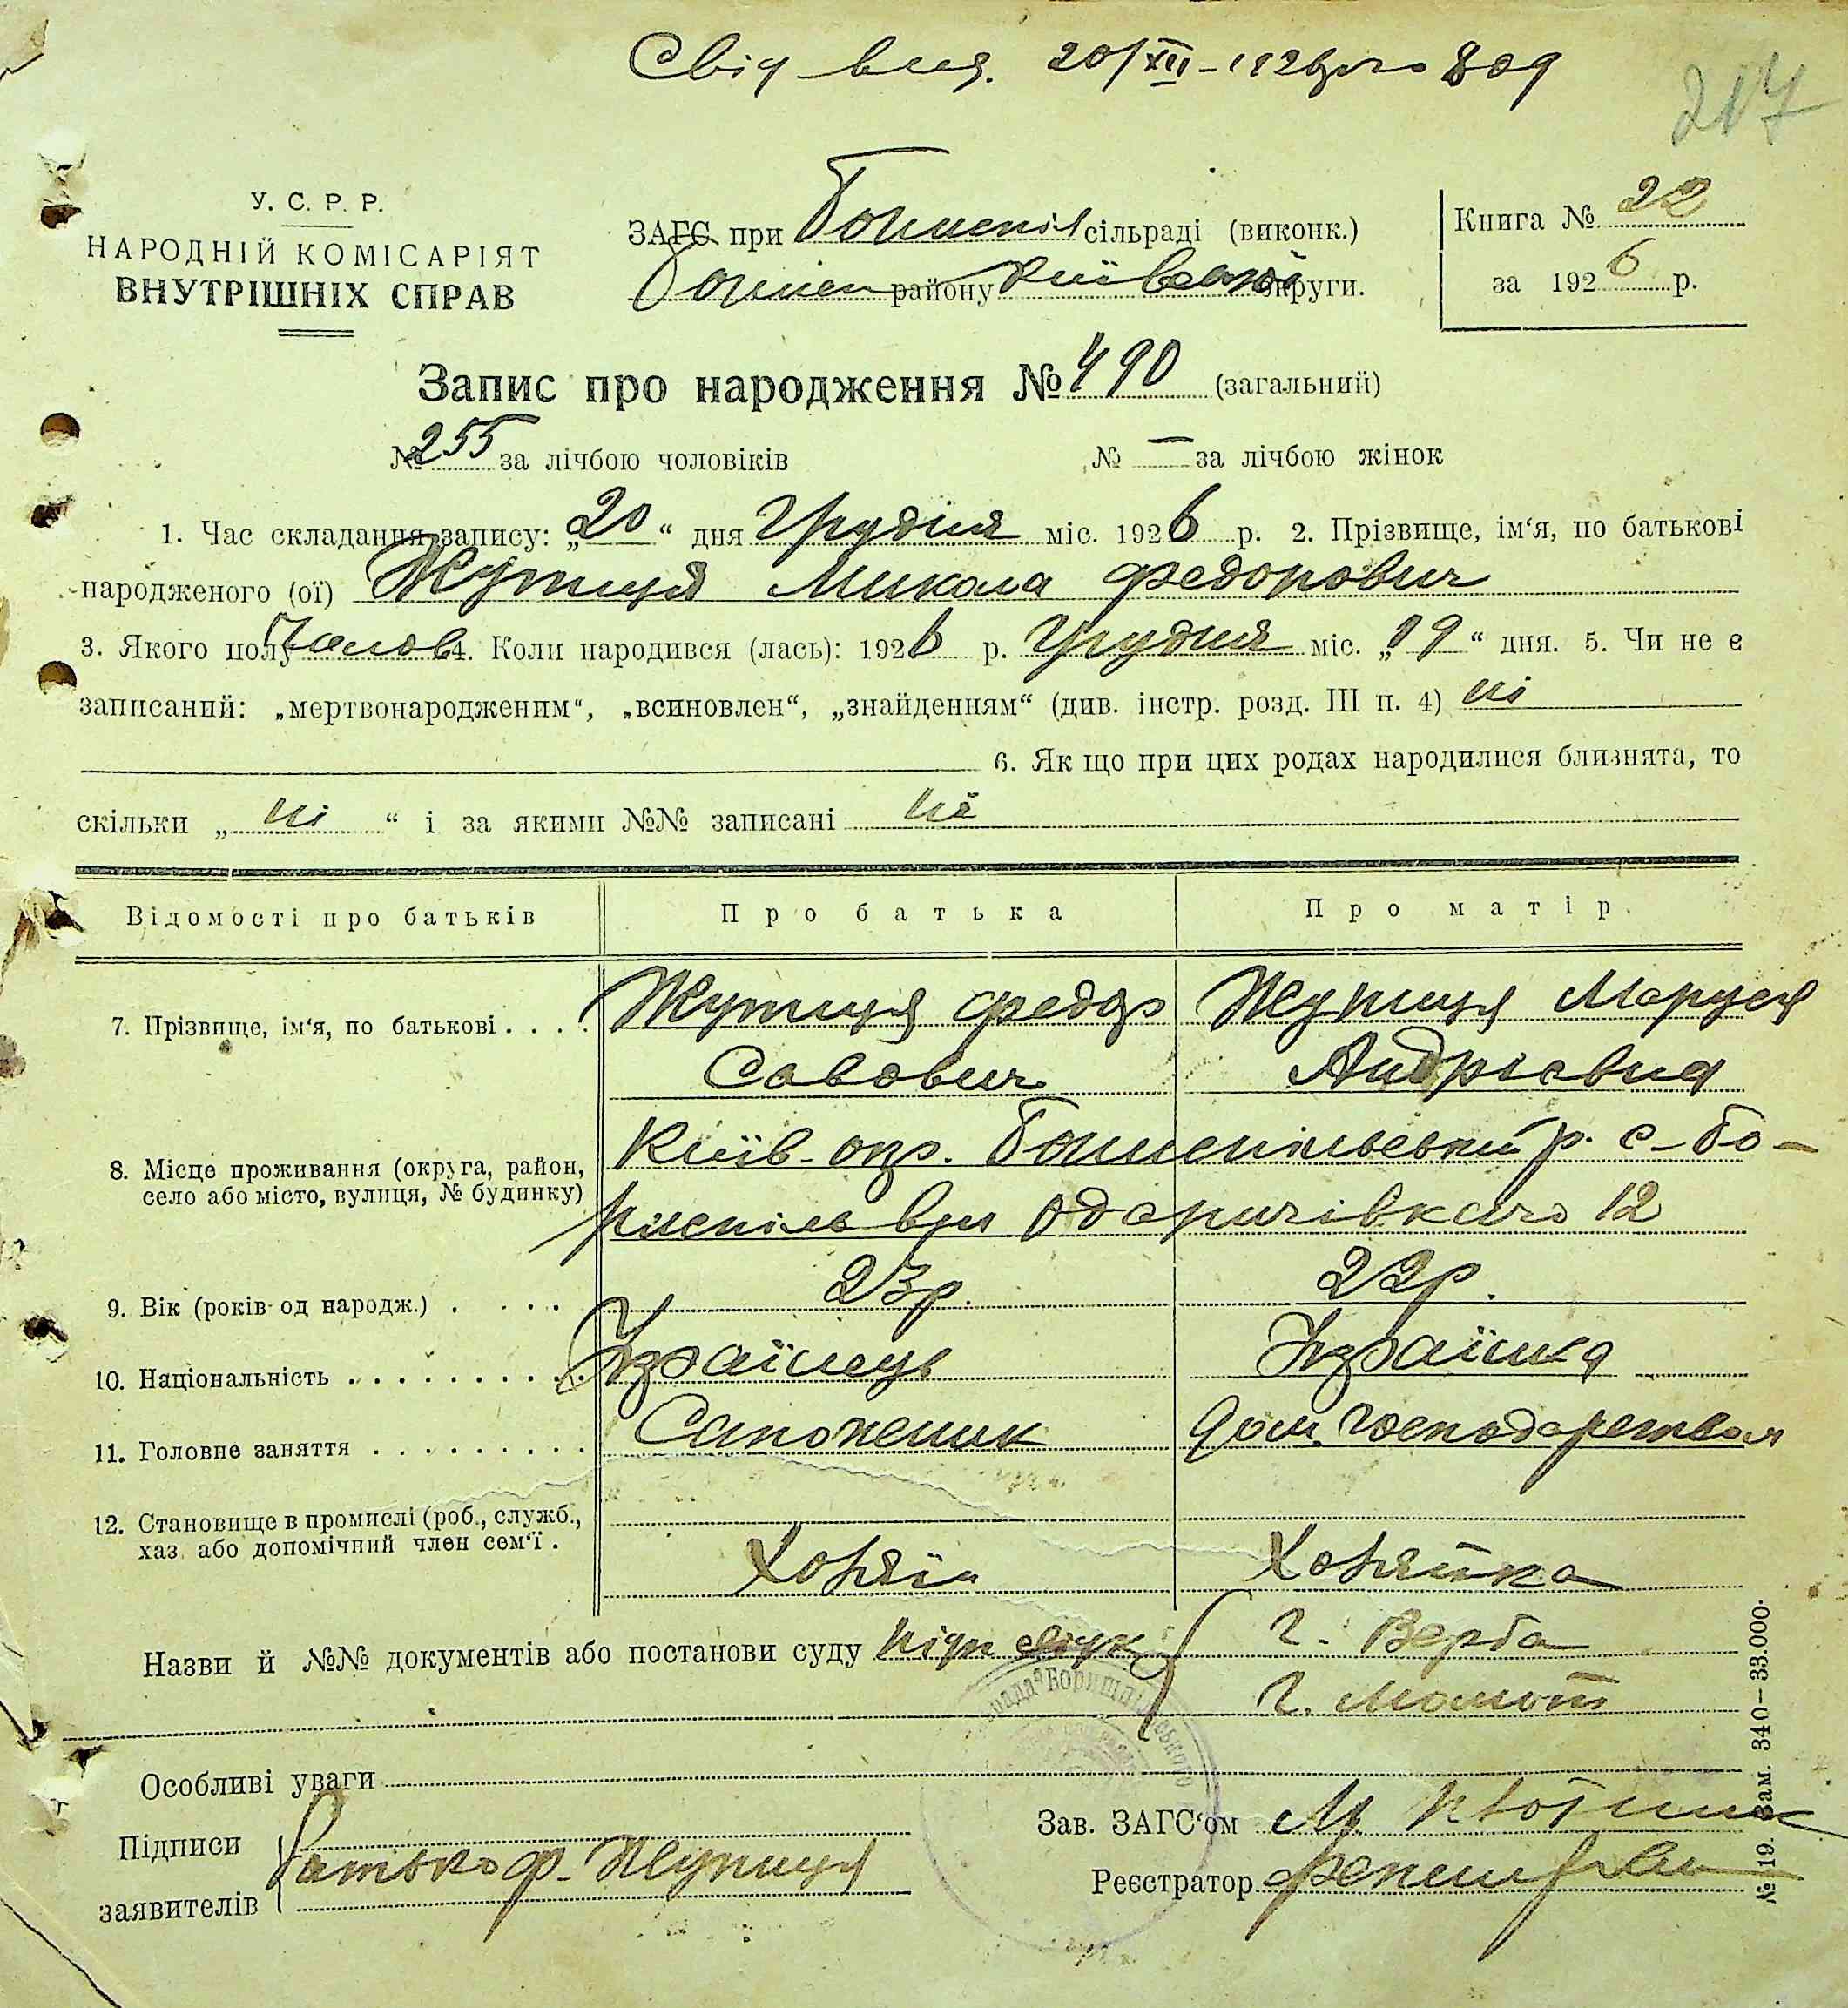 Свід вид. 20/XII-1926 р.
217
У. С. Р. Р.
НАРОДНІЙ КОМІСАРІЯТ
ВНУТРІШНІХ СПРАВ
ЗАГС при сільраді (виконк.)
району Київської округи.
Книга № 22
за 1926 р.
Запис про народження № 490 (загальний)
№ 255 за лічбою чоловіків № — за лічбою жінок
1. Час складання запису: „20“ дня Грудня міс. 1926 р. 2. Прізвище, ім‘я, по батькові
народженого (ої) Жупиця Микола Федорович
3. Якого полу Чолов 4. Коли народився (лась): 1926 р. Грудня міс. „19“ дня. 5. Чи не є
записаний: „мертвонародженим“, „всиновлен“, „знайденням“ (див. інстр. розд. III п. 4) ні
6. Як що при цих родах народилися близнята, то
скільки „ ні “ і за якими №№ записані ні
Відомості про батьків Про батька Про матір
7. Прізвище, ім‘я, по батькові . . . . Жупиця Федор Жупиця Маруся
Савович Андрієвна
8. Місце проживання (округа, район, Київ. окр. р. с-Бо-
село або місто, вулиця, № будинку) риспіль вул Одаричівка 12
9. Вік (років од народж.) . . . . . 23р. 22р.
10. Національність . . . . . . . . . . Українець Українка
11. Головне заняття . . . . . . . . . Сапожник Дом. господарством
12. Становище в промислі (роб., служб.,
хаз. або допомічний член сем‘ї . Хозяїн Хозяйка
Назви й №№ документів або постанови суду Г. Верба
Г. Момот
Особливі уваги
Підписи
заявителів Батько Ф. Жупиця
Зав. ЗАГС‘ом М
Реєстратор
№ 19. Зам. 340—33.000.